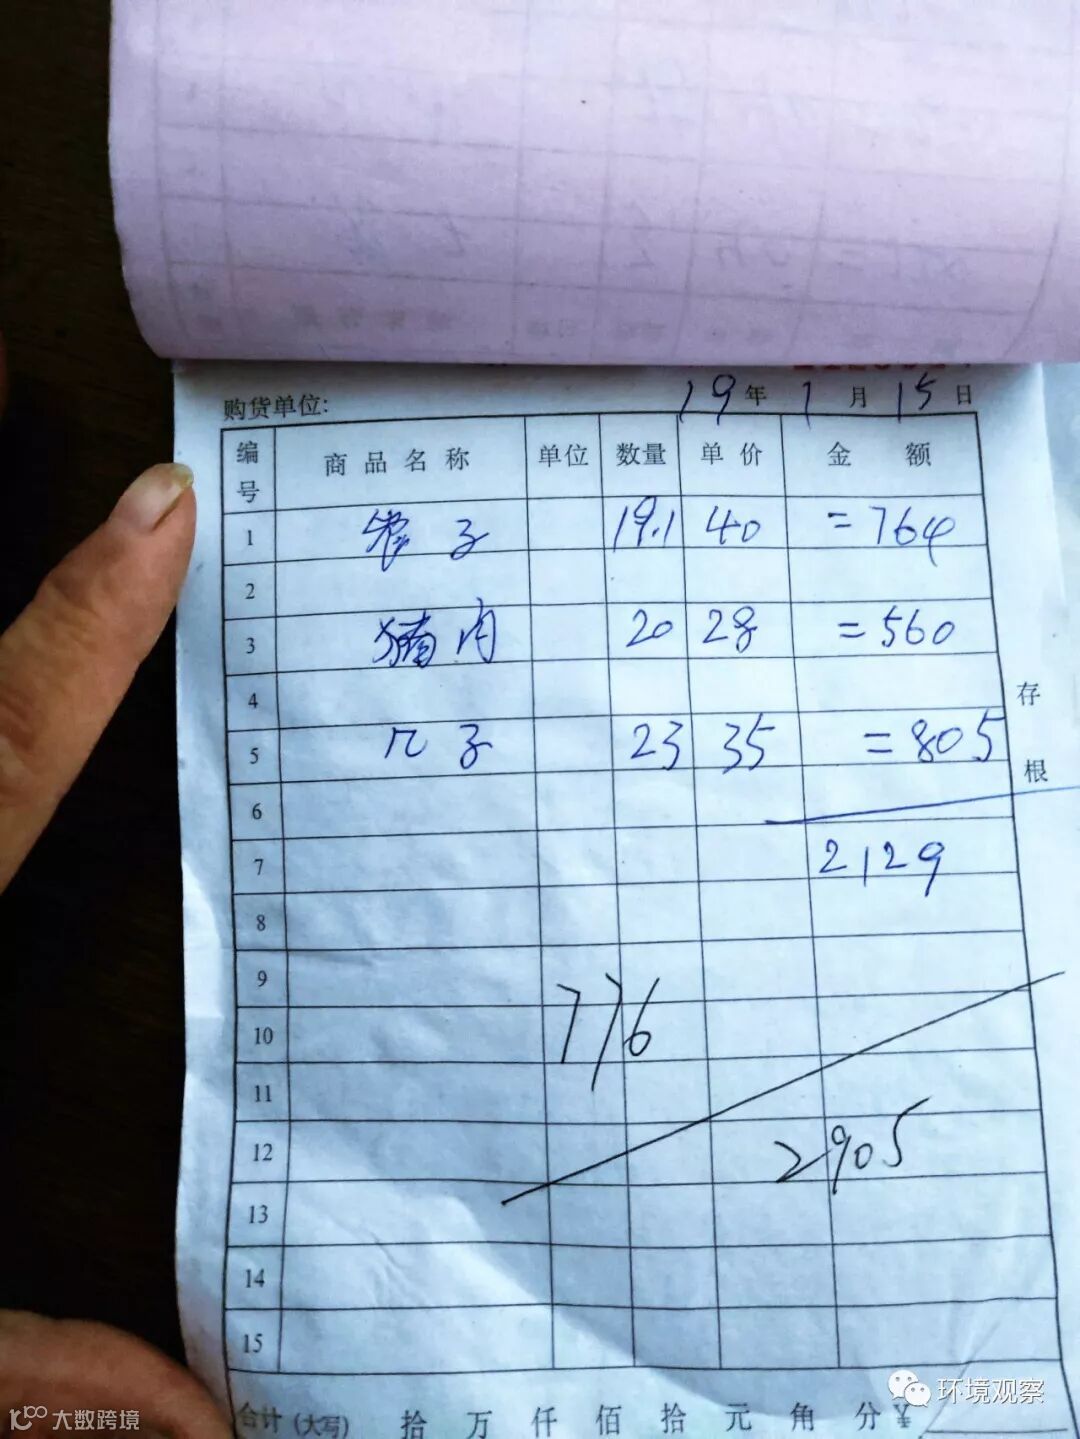 19年1月15日
购货单位:
编号 商品名称 单位 数量 单价 金额
1 子 19.1 40 =764
2
3 猪肉 20 28 =560
4
5 几子 23 35 =805
6
7 2129
8
9
10 776
11
12 2905
13
14
15
存根
合计(大写) 拾 万 仟 佰 拾 元 角 分 ¥
环境观察
大数跨境